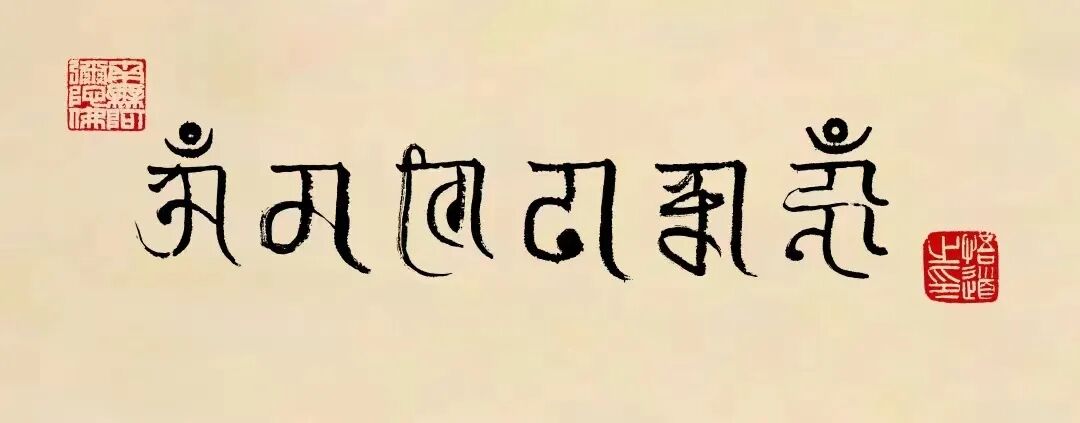 南無阿彌陀佛
𑖌𑖼 𑖦 𑖜𑖰 𑖢 𑖟𑖿𑖦 𑖮𑖳𑖼
悟道之印